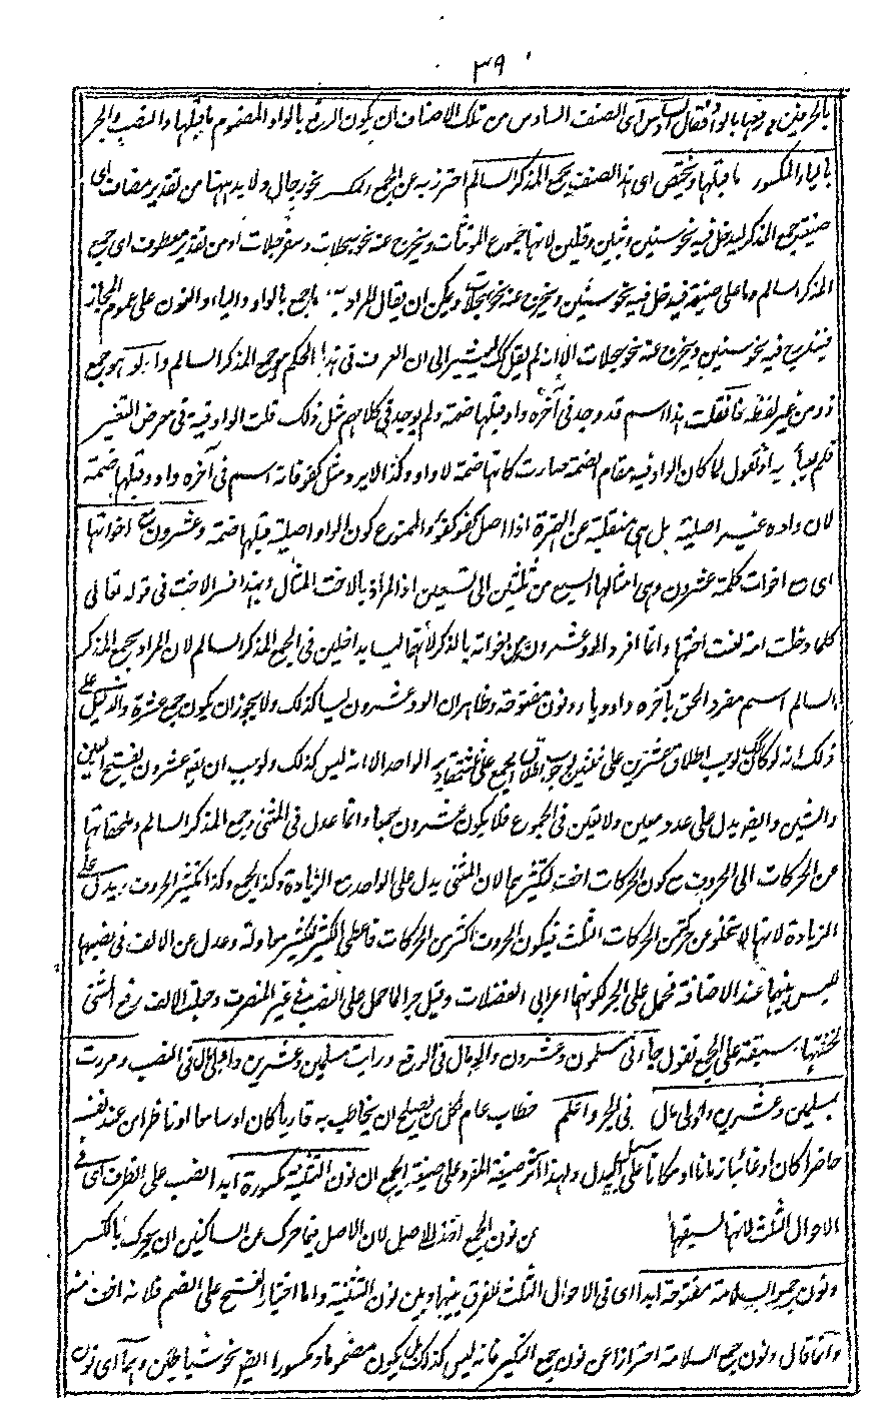 ٣٩
السادس اى الصنف السادس من تلك الاصناف ان يكون الرفع بالواو المضموم ما قبلها والنصب والجر
بالياء المكسور ما قبلها ويختص اى هذا الصنف بجمع المذكر السالم احترز به عن الجمع المكسر نحو رجال ولا بد ههنا من تقدير مضاف اى
صيغة جمع المذكر ليدخل فيه نحو سنين وثبين وقلين لانها جموع المؤنثات ويخرج عنه نحو سجلات وسفرجلات او من تقدير معطوف اى جمع
المذكر السالم وما على صيغته فيدخل فيه نحو سنين ويخرج عنه نحو سجلات ويمكن ان يقال المراد به ما جمع بالواو والياء والنون على عموم المجاز
فيندرج فيه نحو سنين ويخرج عنه نحو سجلات الا انه لم يقل كذلك ليشير الى ان العرف فى هذا الحكم هو جمع المذكر السالم واولو هو جمع
ذو من غير لفظه فان قلت هذا اسم قد وجد فى آخره واو قبلها ضمة ولم يوجد فى كلامهم مثل ذلك قلت الواو فيه فى معرض التغير
فلم يعبأ به او نقول لما كان الواو فيه مقام الضمة صارت كانها ضمة لا واو وكذا لا يرد مثل كفو فانه اسم فى آخره واو وقبلها ضمة
لان واوه غير اصلية بل هى منقلبة عن الهمزة اذ اصل كفو كفؤ والممنوع كون الواو اصلية قبلها ضمة وعشرون مع اخواتها
اى مع اخوات كلمة عشرون وهى امثالها السبع من ثلثين الى تسعين اذ المراد بالاخت المثال وبهذا فسر الاخت فى قوله تعالى
كلما دخلت امة لعنت اختها وانما افرد اولو وعشرون مع اخواته بالذكر لانهما ليسا بداخلين فى الجمع المذكر السالم لان المراد بجمع المذكر
السالم اسم مفرد الحق بآخره واو وياء ونون مفتوحة وظاهر ان الوو عشرون ليسا كذلك ولا يجوز ان يكون جمع عشرة والدليل على
ذلك انه لو كان كذلك لوجب اطلاق عشرين على ثلثين لوجوب اطلاق الجمع على ثلثة مقادير الواحد الا انه ليس كذلك ولوجب ان يقع عشرون بفتح العين
والشين وايضا يدل على عدد معين ولا تعين فى الجموع فلا يكون عشرون جمعا وانما عدل فى المثنى وجمع المذكر السالم وملحقاتها
عن الحركات الى الحروف مع كون الحركات اخف لتكثيرهما لان المثنى يدل على الواحد مع الزيادة وكذا الجمع وكذا تكثير الحروف يدل على
الزيادة لانها لا تخلو عن حركة من الحركات الثلث فيكون الحروف اكثر من الحركات فاعطى الكثير للكثير معادلة وعدل عن الالف فى نصبهما
للبس بينهما عند الاضافة فحمل على الجر لكونهما اعرابى الفضلات وقيل جرا لما حمل على النصب فى غير المنصرف وجعلت الالف رفع المثنى
لخفتها سبقته على الجمع تقول جاءنى مسلمون وعشرون واولو مال فى الرفع ورايت مسلمين وعشرين واولى مال فى النصب ومررت
بمسلمين وعشرين واولى مال فى الجر واعلم خطاب عام لكل من يصلح ان يخاطب به قاريا كان او سامعا او ناظرا من عند نفسه
حاضرا كان او غائبا زمانا او مكانا على سبيل البدل ولهذا اثر صيغة المفرد على صيغة الجمع ان نون التثنية مكسورة ابدا نصب على الظرف اى فى
الاحوال الثلث لانها لسبقها عن نون الجمع اخذ الاصل لان الاصل فيما حرك عن الساكنين ان يحرك بالكسر
ونون جمع السلامة مفتوحة ابدا اى فى الاحوال الثلث للفرق بينها وبين نون التثنية واما اختيار الفتح على الضم فلانه اخف منه
وانما قال ونون جمع السلامة احترازا عن نون جمع التكسير فانه ليس كذلك بل يكون مضموما ومكسورا ايضا نحو شياطين وهما اى نون